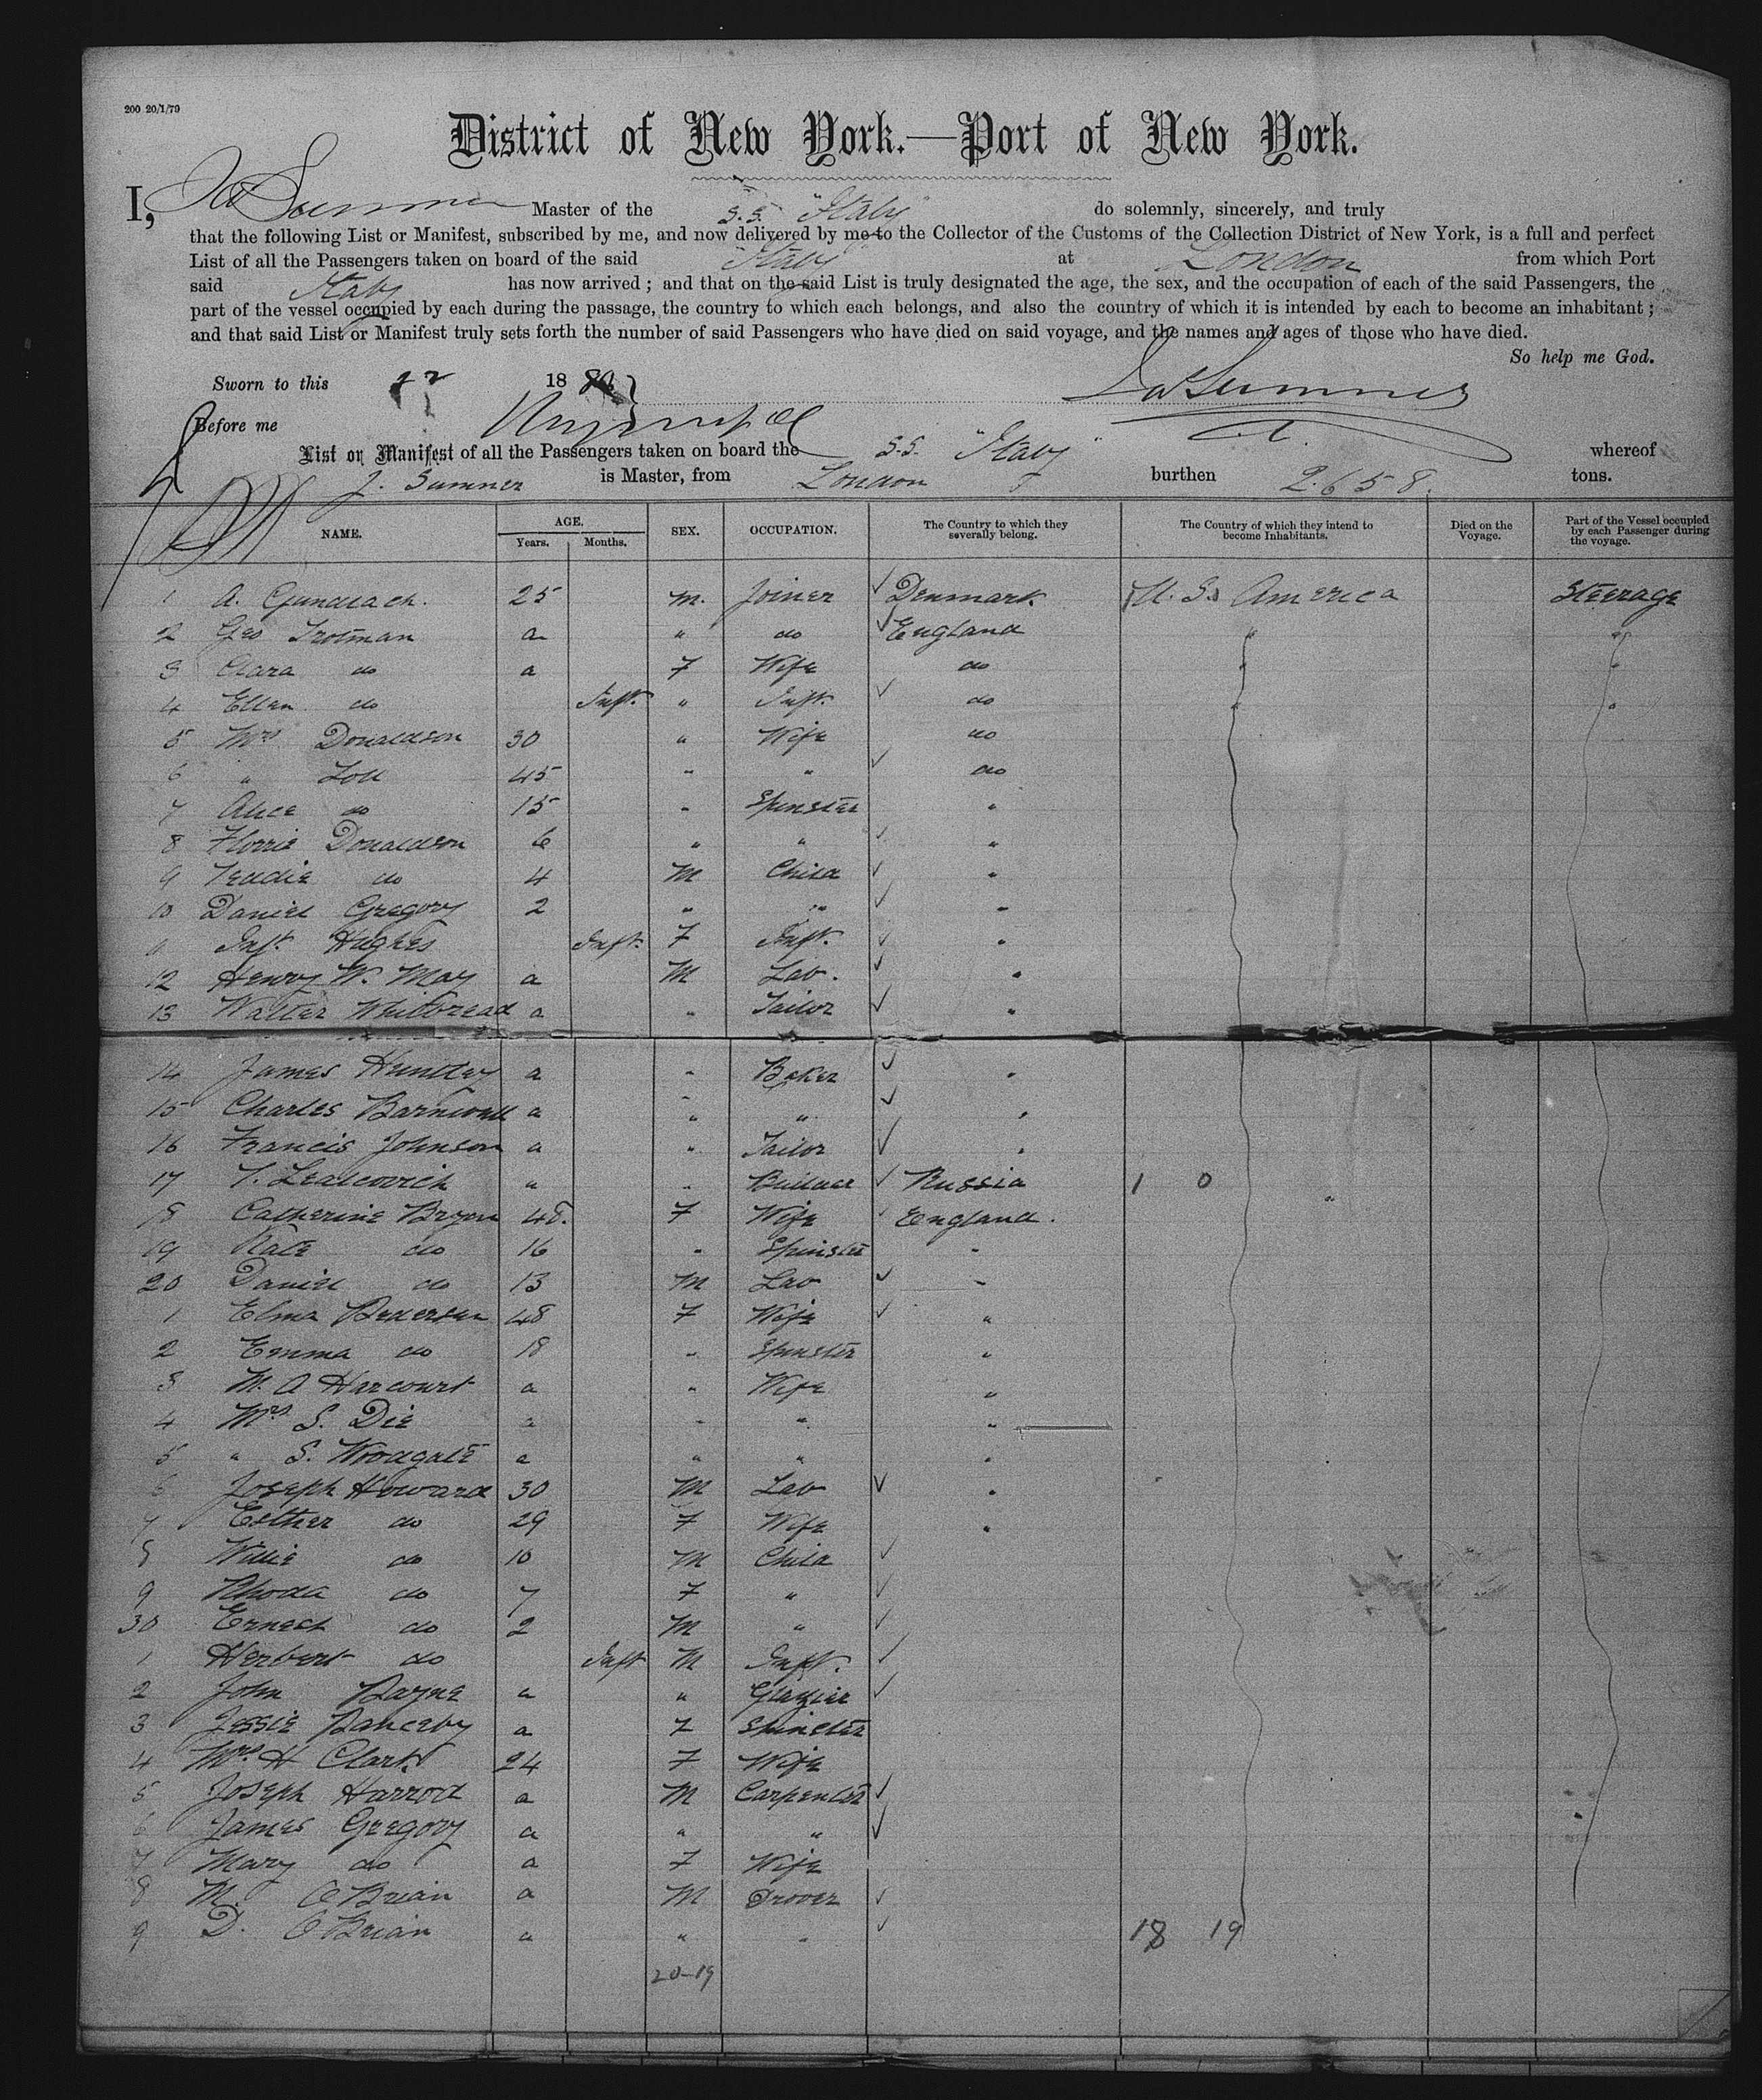 200 20/1/79
District of New York.—Port of New York.
I, Sumner Master of the S.S. "Italy" do solemnly, sincerely, and truly
that the following List or Manifest, subscribed by me, and now delivered by me to the Collector of the Customs of the Collection District of New York, is a full and perfect
List of all the Passengers taken on board of the said "Italy" at London from which Port
said Italy has now arrived; and that on the said List is truly designated the age, the sex, and the occupation of each of the said Passengers, the
part of the vessel occupied by each during the passage, the country to which each belongs, and also the country of which it is intended by each to become an inhabitant;
and that said List or Manifest truly sets forth the number of said Passengers who have died on said voyage, and the names and ages of those who have died.
So help me God.
Sworn to this 22 18 80 Sumner
Before me
List or Manifest of all the Passengers taken on board the S.S. "Italy" whereof
J. Sumner is Master, from London burthen 2.658. tons.
NAME. AGE. Years. Months. SEX. OCCUPATION. The Country to which they severally belong. The Country of which they intend to become Inhabitants. Died on the Voyage. Part of the Vessel occupied by each Passenger during the voyage.
1 A. Gundlach. 25 M. Joiner Denmark U.S. America Steerage
2 Geo Trotman a " do England " "
3 Clara do a F Wife do " "
4 Ellen do Inft. " Inft. do " "
5 Mrs Donaldson 30 " Wife do
6 " 45 " " do
7 Alice do 15 " Spinster "
8 Florrie Donaldson 6 " " "
9 Freddie do 4 M Child "
10 Daniel Gregory 2 " " "
11 Inft. Hughes Inft. F Inft. "
12 Henry W. May a M Lab. "
13 Walter Whitbread a " Tailor "
14 James Huntley a " Baker "
15 Charles Barnwell a " " "
16 Francis Johnson a " Tailor "
17 " " Russia 1 0 "
18 Catherine Bryan 48. F Wife England.
19 Kate do 16 " Spinster "
20 Daniel do 13 M Lab "
1 Elma Pedersen 48 F Wife "
2 Emma do 18 " Spinster "
3 M. A Harcourt a " Wife "
4 Mrs S. Die a " " "
5 " S. Woodgate a " " "
6 Joseph Howard 30 M Lab "
7 Esther do 29 F Wife "
8 Willie do 10 M Child
9 Rhoda do 7 F "
30 Ernest do 2 M "
1 Herbert do Inft M Inft.
2 John Payne a " Glazier
3 Jessie a F Spinster
4 Mrs H Clark 24 F Wife
5 Joseph Harrod a M Carpenter
6 James Gregory a " "
7 Mary do a F Wife
8 M. O'Brian a M Drover
9 D. O'Brian a " " 18 19
20-19